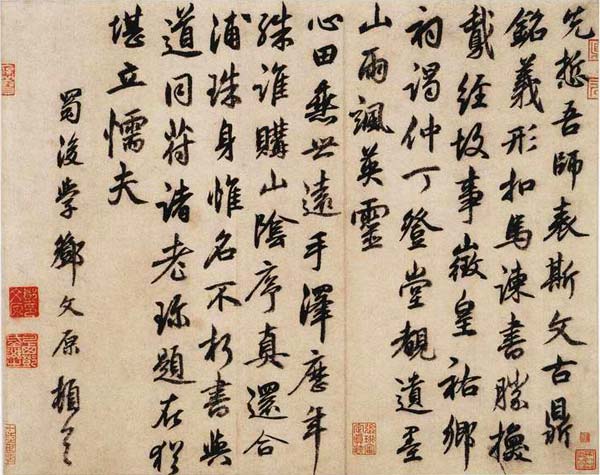 先哲吾師表斯文古鼎
銘義形扣馬諫書勝換
鵞經故事徵皇祐鄉
祠謁仲丁登堂觀遺墨
山雨颯英靈
心田垂世遠手澤歷年
殊誰購山陰序真還合
浦珠身惟名不朽書與
道同符諸老珍題在猶
堪立懦夫
蜀後學鄧文原頓首